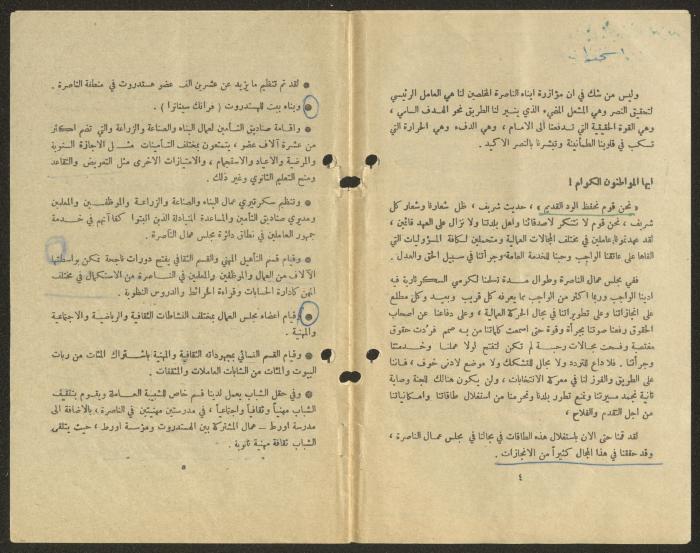 وليس من شك في ان مؤازرة ابناء الناصرة المخلصين لنا هي العامل الرئيسي
لتحقيق النصر وهي المشعل المضيء الذي ينير لنا الطريق نحو الهدف السامي ،
وهي القوة الحقيقية التي تدفعنا الى الامام ، وهي الدفء وهي الحرارة التي
تسكب في قلوبنا الطمأنينة وتبشرنا بالنصر الاكيد .
ايها المواطنون الكرام !
« نحن قوم نحفظ الود القديم » ، حديث شريف ، ظل شعارنا وشعار كل
شريف ، نحن قوم لا نتنكر لاصدقائنا واهل بلدتنا ولا نزال على العهد قائمين ،
لقد عهدتمونا عاملين في مختلف المجالات العمالية ومتحملين لكافة المسؤوليات التي
القاها على عاتقنا الواجب وحبنا للخدمة العامة وجرأتنا في سبيل الحق والعدل .
ففي مجلس عمال الناصرة وطوال مدة تسلمنا لكرسي السكرتارية فيه
ادينا الواجب وربما اكثر من الواجب بما يعرفه كل قريب وبعيد وكل مطلع
على انجازاتنا وعلى تطوراتنا في مجال الحركة العمالية ، وعلى دفاعنا عن اصحاب
الحقوق رفعنا صوتنا بجرأة وقوة حتى اسمعت كلماتنا من به صمم فردت حقوق
مغتصبة وفتحت مجالات رحبة لم تكن لتفتح لولا عملنا وخدمتنا
وجرأتنا . فلا داع للتردد ولا مجال للتشكك ولا موضع لادنى خوف ، فاننا
على الطريق والفوز لنا في معركة الانتخابات ، ولن يكون هنالك للجنة وصاية
ثانية تجمد مسيرتنا وتمنع تطور بلدنا وتحرمنا من استغلال طاقاتنا وامكانياتنا
من اجل التقدم والفلاح ،
لقد قمنا حتى الان باستغلال هذه الطاقات في مجالنا في مجلس عمال الناصرة ،
وقد حققنا في هذا المجال كثيراً من الانجازات .
٤
● لقد تم تنظيم ما يزيد عن عشرين الف عضو هستدروت في منطقة الناصرة .
● وبناء بيت للهستدروت ( فرانك سيناترا ) .
● واقامة صناديق التأمين لعمال البناء والصناعة والزراعة والتي تضم اكثر
من عشرة آلاف عضو ، يتمتعون بمختلف التأمينات مثل الاجازة السنوية
والمرضية والاعياد والاستجمام ، والامتيازات الاخرى مثل التعويض والتقاعد
ومنح التعليم الثانوي وغير ذلك .
● وتنظيم سكرتيري عمال البناء والصناعة والزراعة والموظفين والمعلمين
ومديري صناديق التأمين والمساعدة المتبادلة الذين اثبتوا كفاآتهم في خدمة
جمهور العاملين في نطاق دائرة مجلس عمال الناصرة .
● وقيام قسم التأهيل المهني والقسم الثقافي بفتح دورات ناجحة تمكن بواسطتها
الآلاف من العمال والموظفين والمعلمين في الناصرة من الاستكمال في مختلف
المهن كادارة الحسابات وقراءة الخرائط والدروس النظرية .
● وقيام اعضاء مجلس العمال بمختلف النشاطات الثقافية والرياضية والاجتماعية
والمهنية .
● وقيام القسم النسائي بمجهوداته الثقافية والمهنية باشتراك المئات من ربات
البيوت والمئات من الشابات العاملات والمثقفات .
● وفي حقل الشباب يعمل لدينا قسم خاص للشبيبة العاملة ويقوم بتثقيف
الشباب مهنياً وثقافياً واجتماعياً ، في مدرستين مهنيتين في الناصرة ، بالاضافة الى
مدرسة اورط – عمال المشتركة بين الهستدروت ومؤسسة اورط ، حيث يتلقى
الشباب ثقافة مهنية ثانوية .
٥